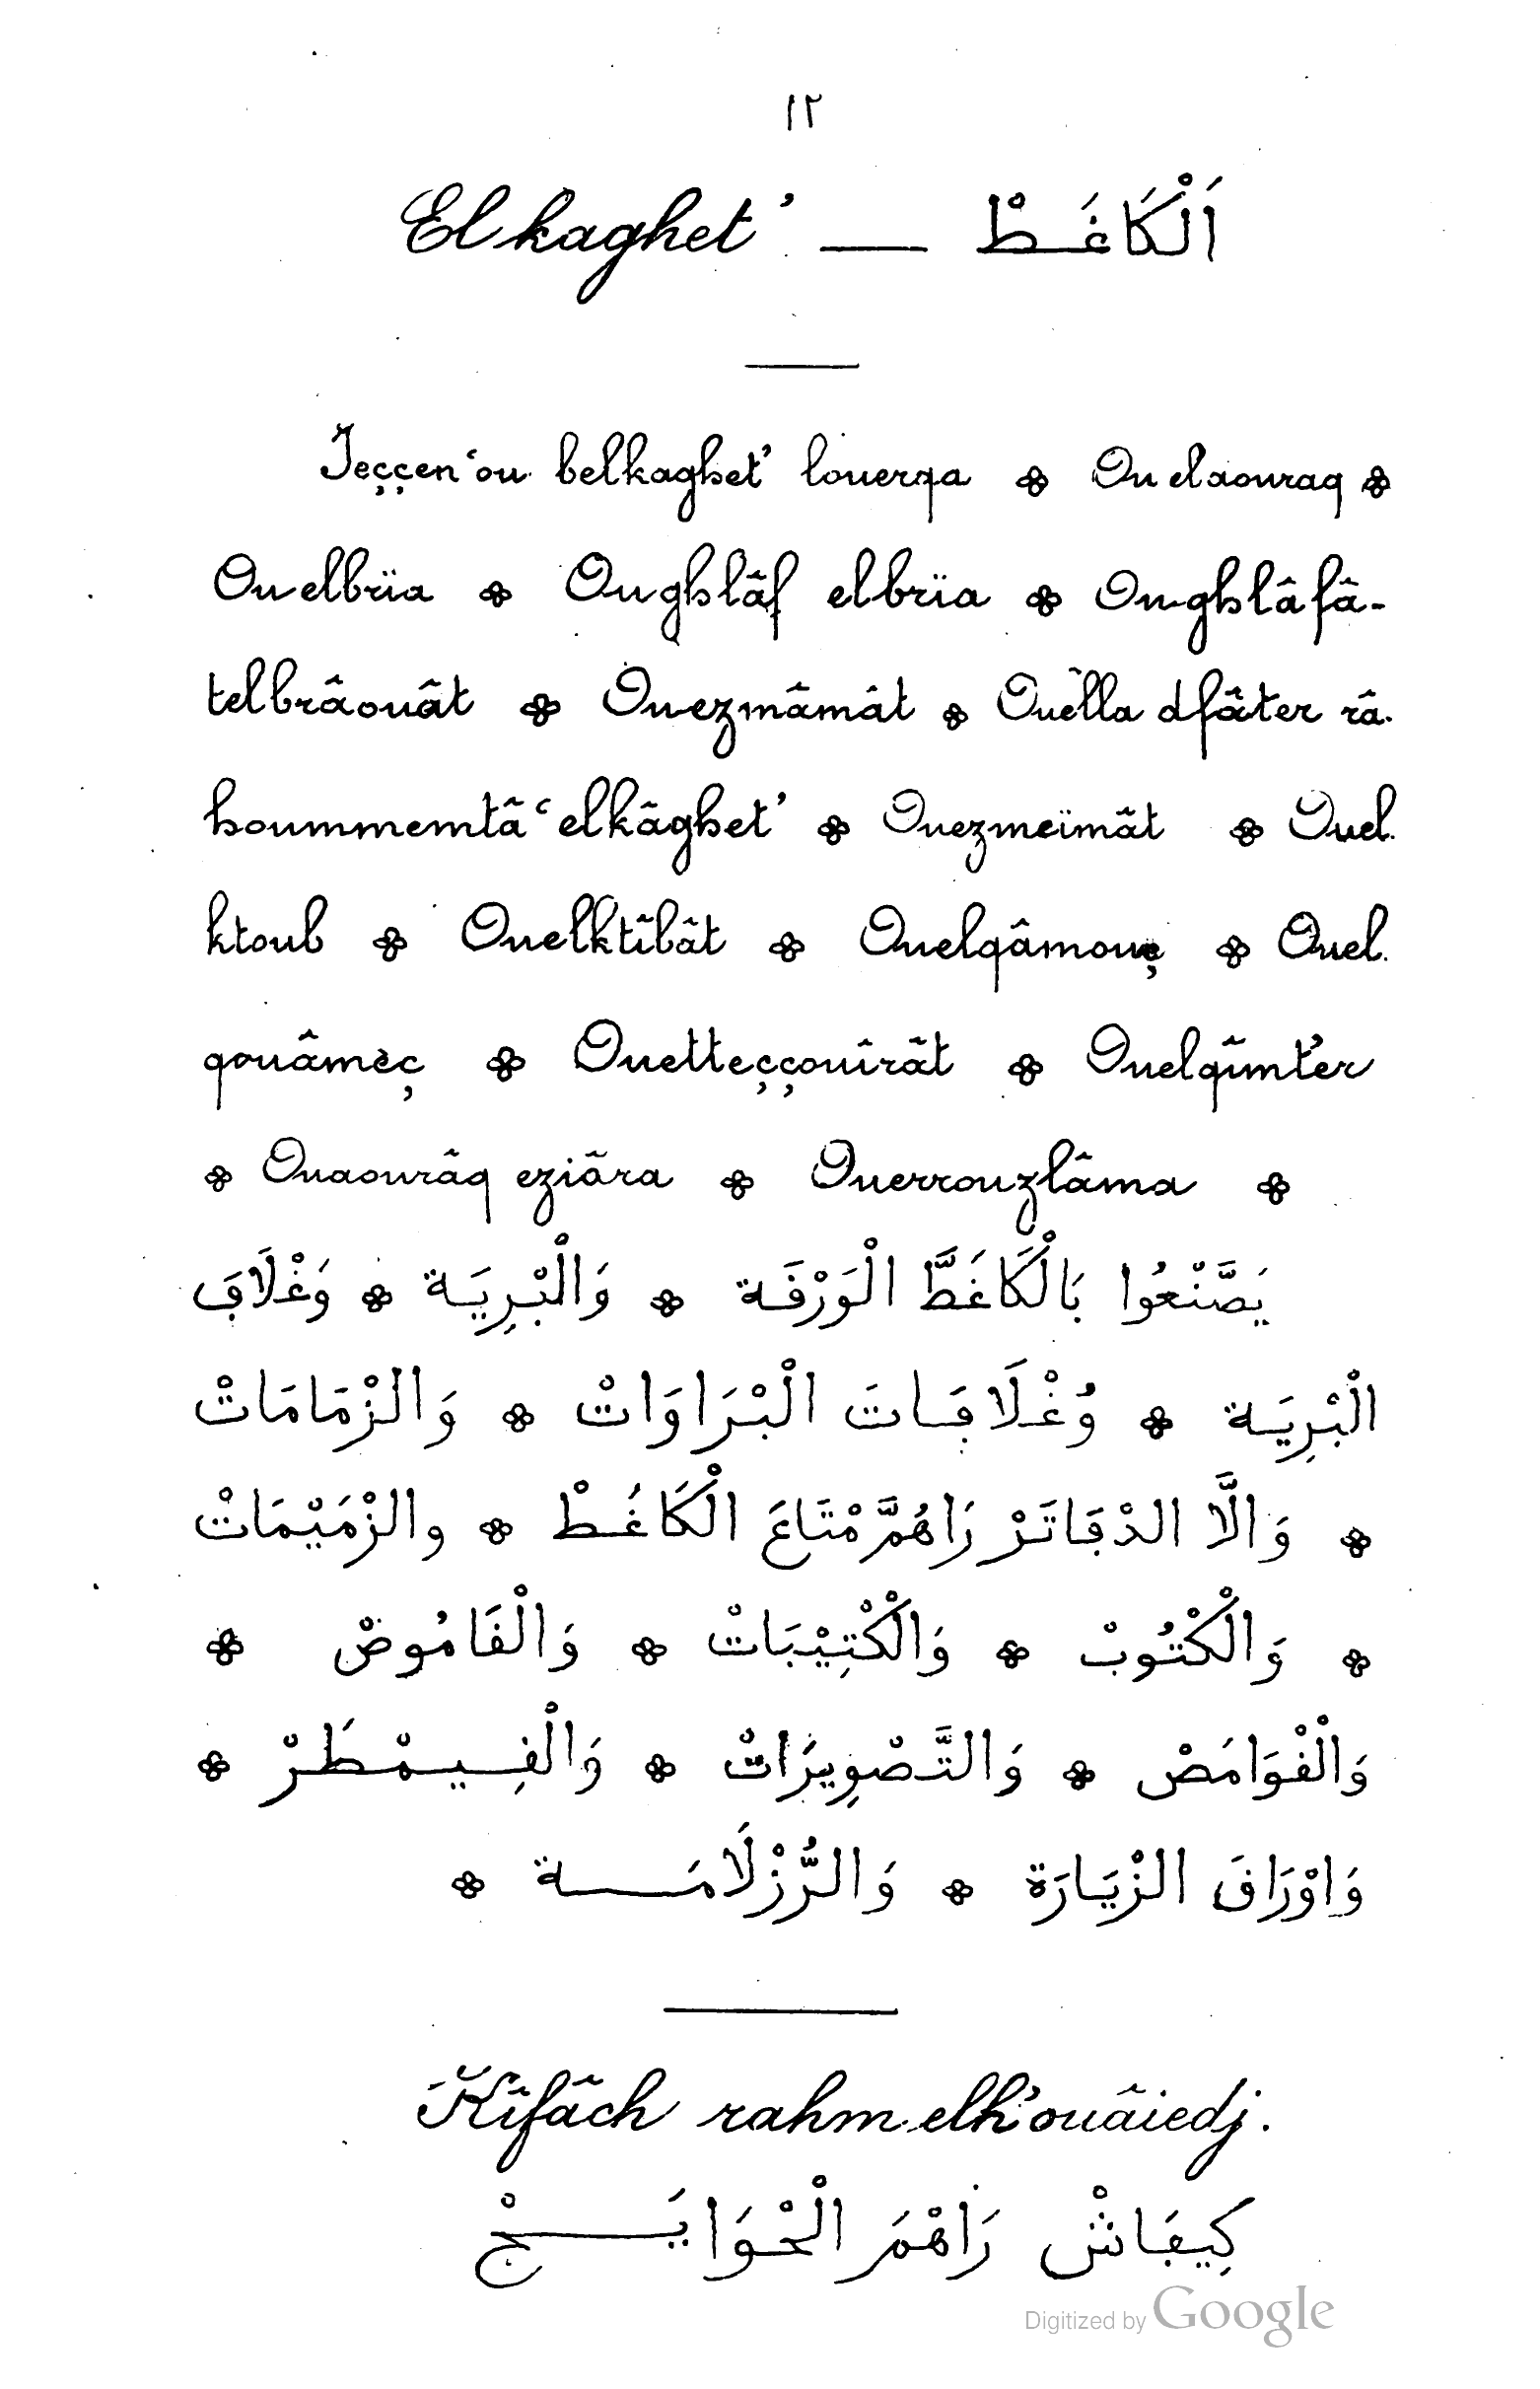 ١٢
El kaghet' — اَلْكَاغَـطْ
Ieççen'ou belkaghet' louerqa ❀ Ou elaouraq ❀
Ou elbrïa ❀ Ou ghlâf elbrïa ❀ Ou ghlâfâ-
telbrâouât ❀ Ouezmâmât ❀ Ouèlla dfâter râ-
hoummemtâ‘elkâghet' ❀ Ouezmeïmât ❀ Ouel-
ktoub ❀ Ouelktîbât ❀ Ouelqâmouç ❀ Ouel-
qouâmèç ❀ Ouetteççouîrât ❀ Ouelqîmt'er
❀ Ouaourâq eziâra ❀ Ouerrouzlâma ❀
يَصَّنْعُوا بَالْكَاغَطَّ الْوَرْڧَـة ❀ وَالْبْرِيَـة ❀ وَغْلَاڢَ
الْبْرِيَـة ❀ وُغْـلَاڢَـاتَ الْبْـرَاوَاتْ ❀ وَالزْمَامَاتْ
❀ وَالَّا الدْڢَاتَـرْ رَاهُمَّ مْتَاعَ الْكَاغَـطْ ❀ والزْمَيْمَاتْ
❀ وَالْكْتُـوبْ ❀ وَالْكْتِيْبَاتْ ❀ وَالْڧَامُوصْ ❀
وَالْڧْوَامَصْ ❀ وَالتَّـصْوِيرَاتْ ❀ وَالْڧِـيـمْـطَـرْ ❀
وَاوْرَاڧَ الزْيَـارَة ❀ وَالرُّزْلَامَـــة ❀
Kîfâch rahm elh'ouâiedj.
كِيـڢَـاشْ رَاهْمَ الْحْوَايَـــجْ
Digitized by Google